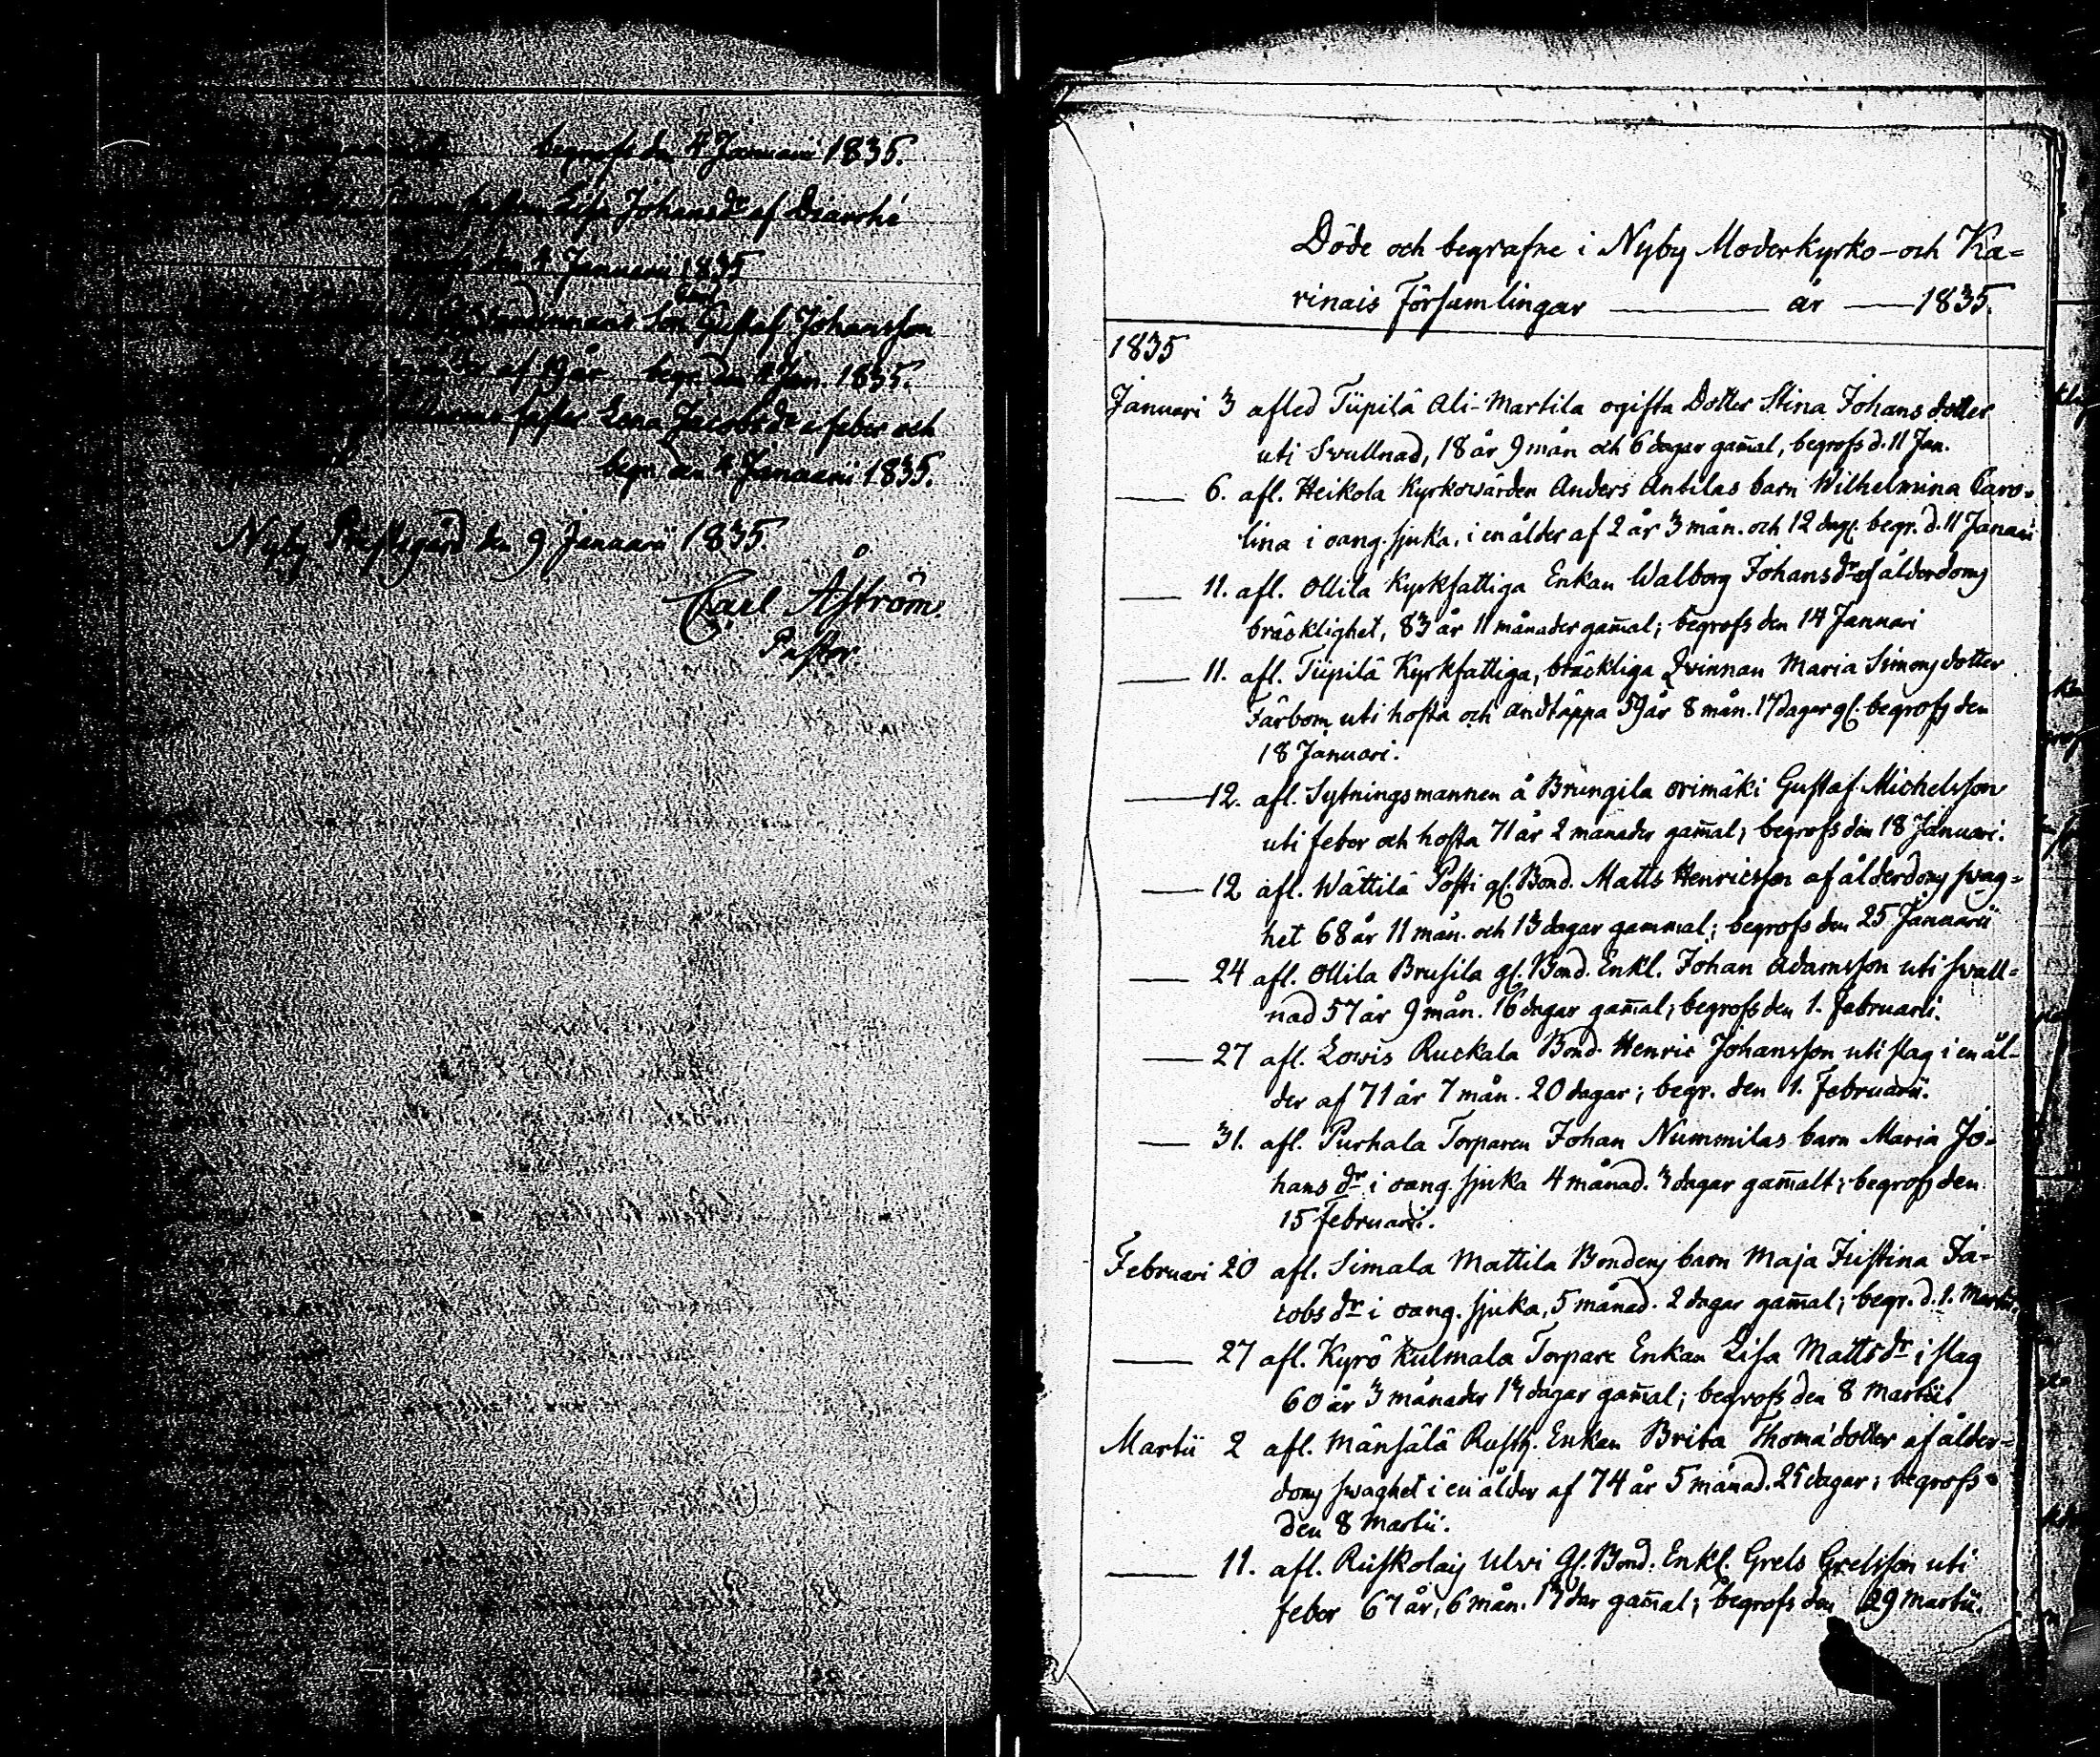 begrofs den 4 Januarii 1835.
Lisa Johansdr af Diarrhé
den 4 Januarii 1835
Son Gustaf Johansson
af 19 år begr. den 4 Jan. 1835.
Lena Jacobsdr af feber och
begr. den 4 Januarii 1835.
Nyby Prestegård den 9 Januarii 1835.
Carl Åström.
Pastor.
Döde och begrafne i Nyby Moderkyrko- och Ka=
rinais Församlingar ——— år —— 1835.
1835
Januari 3 afled Tüpilä Ali-Martila ogifta Dotter Stina Johans dotter
uti Svullnad, 18 år 9 mån och 6 dagar gam̄al, begrofs d. 11 Jan.
—— 6. afl. Heikola Kyrkowärden Anders Antilas barn Wilhelmina Caro=
lina i oang. sjuka, i en ålder af 2 år 3 mån. och 12 dag. begr. d. 11 Januari
—— 11. afl. Ollila Kyrkfattiga Enkan Walborg Johansdr af ålderdoms
bräcklighet, 83 år 11 månader gam̄al; begrofs den 14 Januari
—— 11. afl. Tüpilä Kyrkfattiga, bräckliga Qvinnan Maria Simonsdotter
Färbom uti hosta och andtäppa 59 år 8 mån. 17 dagar gl. begrofs den
18 Januari.
—— 12. afl. Sytningsmannen å Brungila orimäki Gustaf Michelsson
uti feber och hosta 71 år 2 månader gam̄al; begrofs den 18 Januari.
—— 12 afl. Wättilä Posti gl. Bond. Matts Henricsson af ålderdoms swag=
het 68 år 11 mån. och 13 dagar gammal; begrofs den 25 Januarii
—— 24 afl. Ollila Brusila gl. Bond. Enkl. Johan Adamsson uti svull=
nad 57 år 9 mån. 16 dagar gam̄al; begrofs den 1. Februarii.
—— 27 afl. Lowis Ruckala Bond. Henric Johansson uti slag i en ål=
der af 71 år 7 mån. 20 dagar; begr. den 1. Februarii.
—— 31. afl. Purhala Torparen Johan Nummilas barn Maria Jo=
hans dr i oang. sjuka 4 månad. 3 dagar gam̄alt; begrofs den
15 Februarii.
Februari 20 afl. Simala Mattila Bondens barn Maja Justina Ja=
cobs dr i oang. sjuka, 5 månad. 2 dagar gam̄al; begr. d. 1. Martii.
—— 27 afl. Kyrö Kulmala Torpare Enkan Lisa Mattsdr i slag
60 år 3 månader 13 dagar gam̄al; begrofs den 8 Martii.
Martii 2 afl. Mänsälä Rusth. Enkan Brita Thomædotter af ålder=
doms swaghet i en ålder af 74 år 5 månad. 25 dagar; begrofs
den 8 Martii.
—— 11. afl. Ruskolais Ulvi Gl. Bond. Enkl. Grels Grelsson uti
feber 67 år, 6 mån. 13 dar gam̄al; begrofs den 29 Martii.